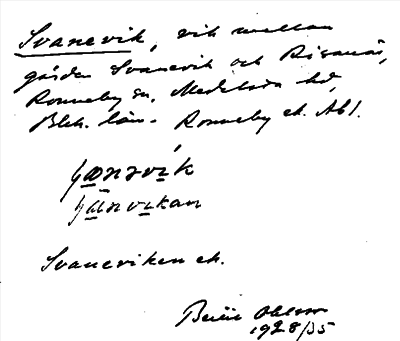 Svanevik, vik mellan
gården Svanevik och Risanäs,
Ronneby sn, Medelsta hd,
Blek. län. Ronneby ek. Abl.
Svaneviken ek.
Ohlsson
1928/35